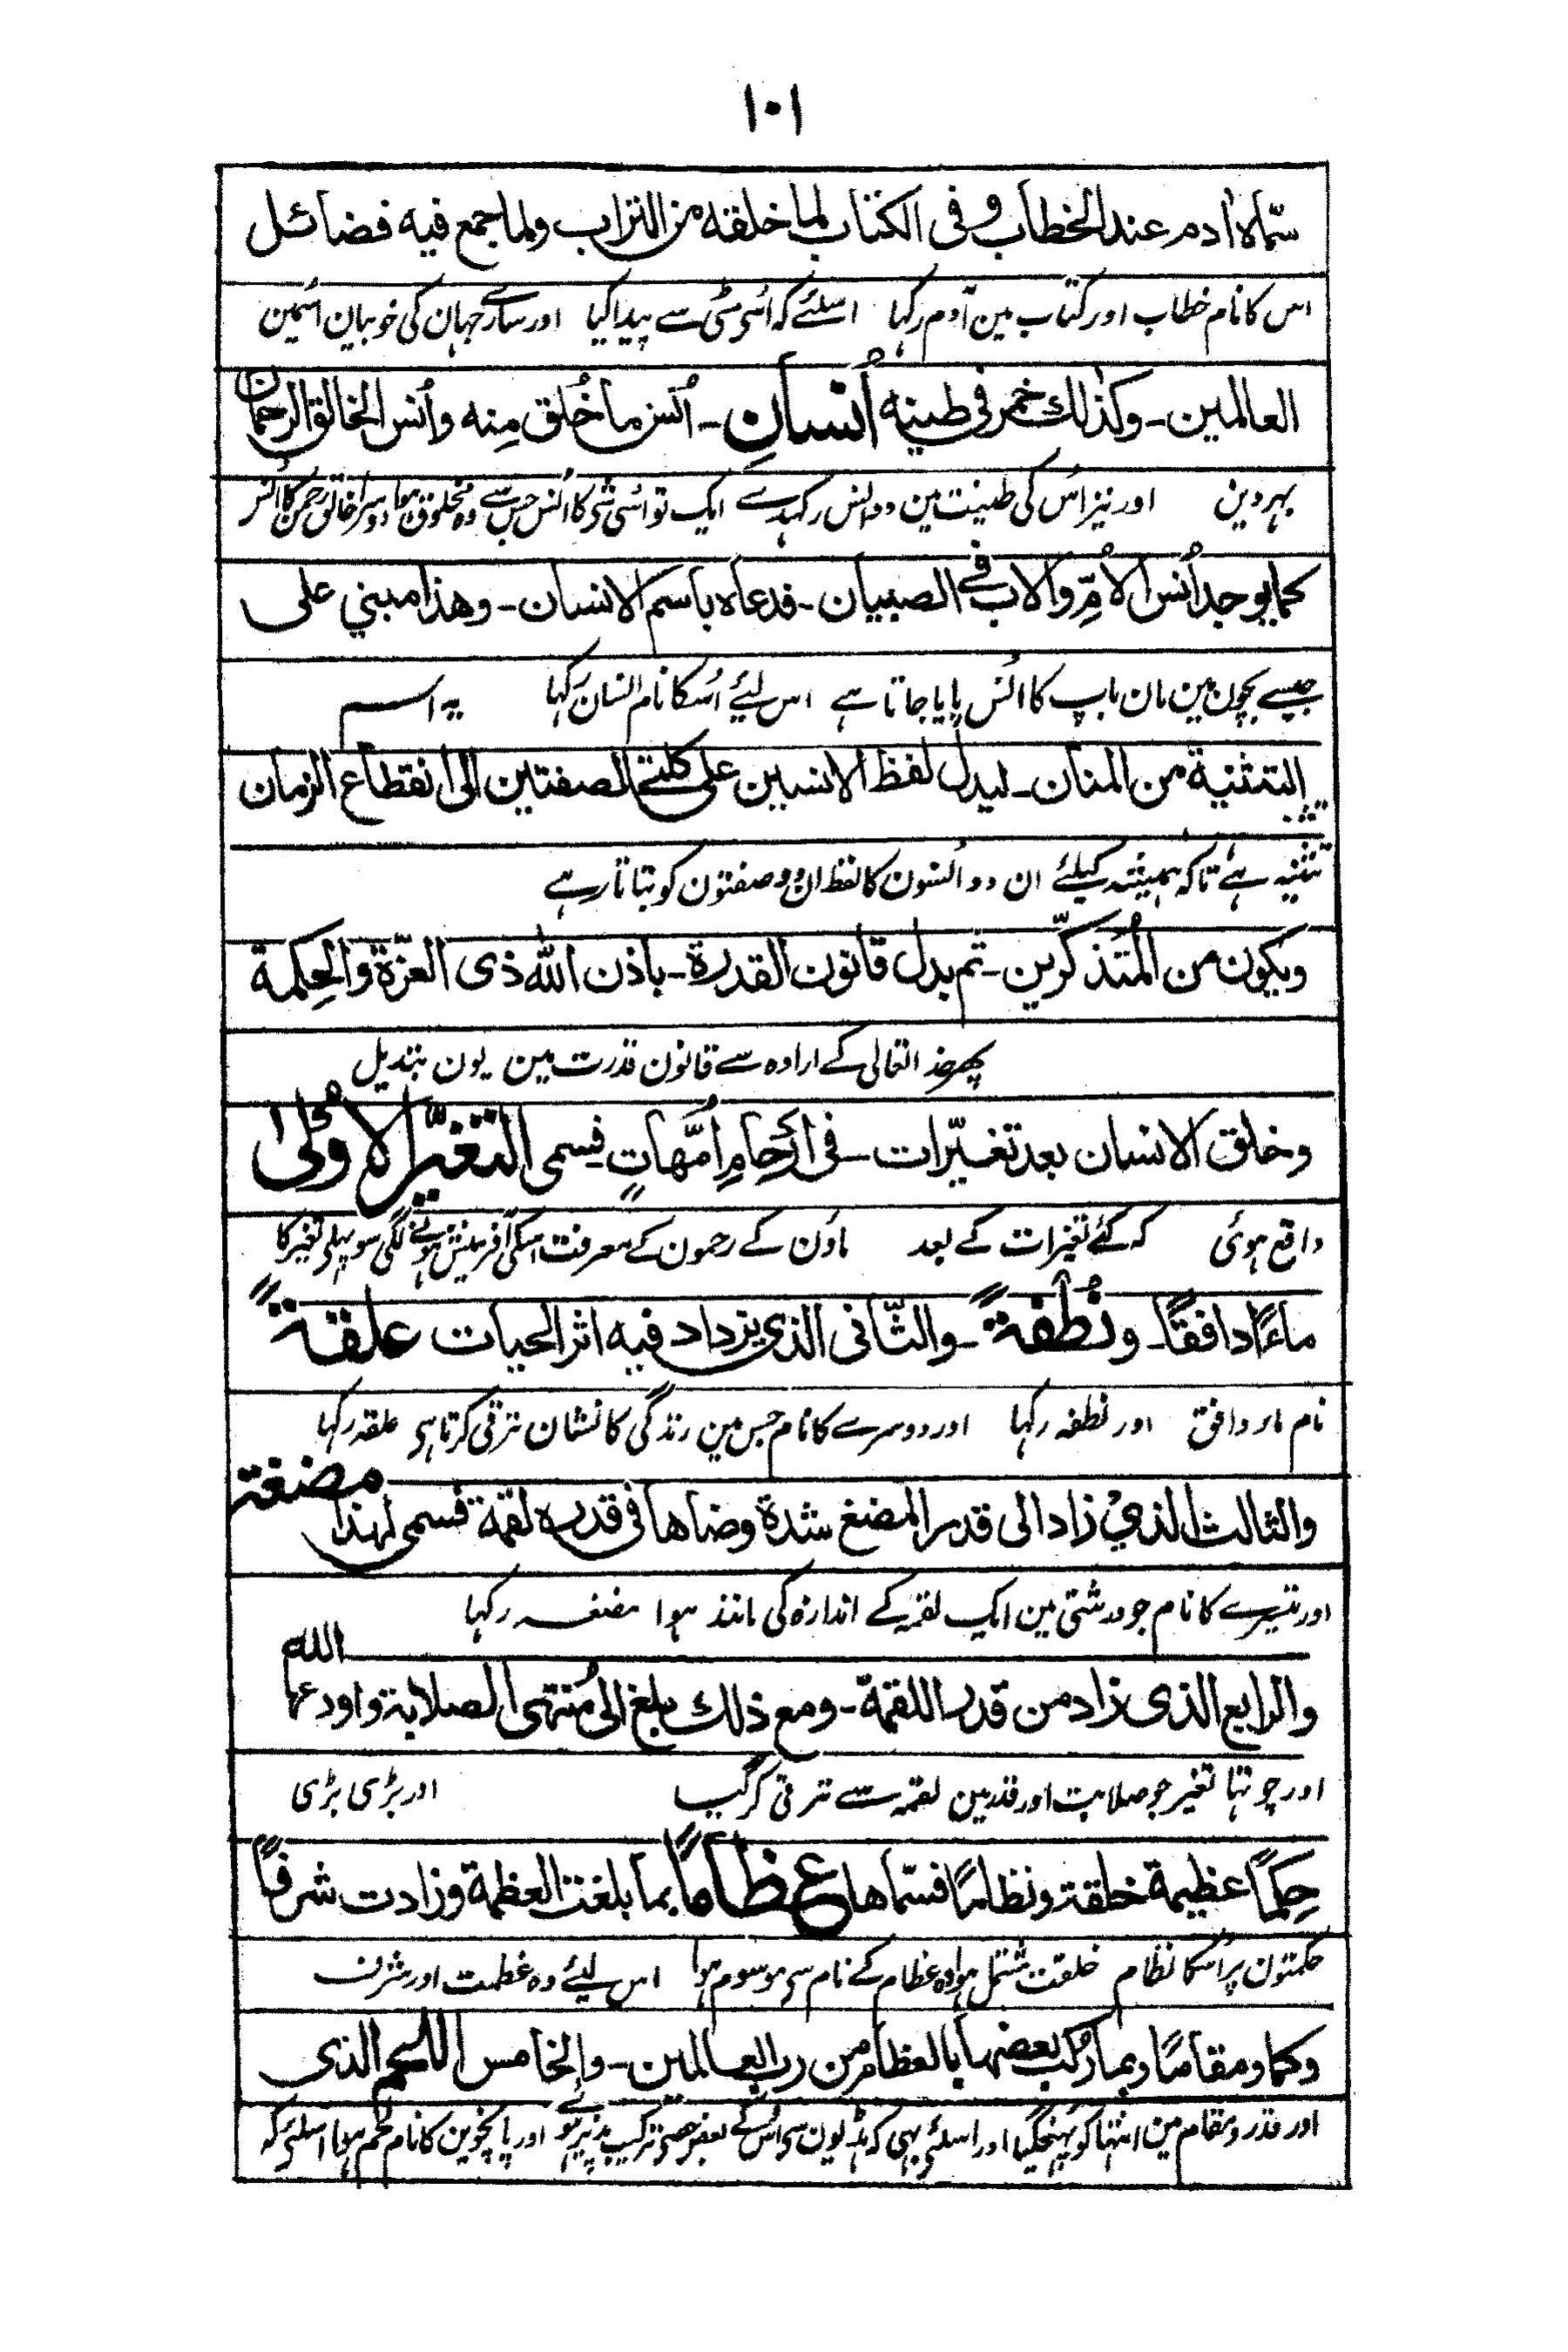 ١٠١
سمّاه اٰدم عند الخطاب و فی الکتاب لما خلقه من التراب ولما جمع فیه فضائل
اس کا نام خطاب اور کتاب مین آدم رکہا اسلئے کہ اُسی مٹی سے پیدا کیا اور سارے جہان کی خوبیان اُسمین
العالمین۔ وکذٰلک خمر فی طینه اُنْسَانِ۔ اُنس ما خُلق مِنه واُنس الخالق الرحمان
بہر دین اور نیز اُس کی طینت مین دو اُنس رکہدیے ایک تو اُسی شی کا اُنس جس سے وہ مخلوق ہوا دوسرا خالق رحمن کا اُنس
کما یوجد اُنس الاُمِّ والاب فی الصبیان۔ فدعاه باسم الانسان۔ وهذا مبني علی
جیسے بچون مین مان باپ کا اُنس پایا جاتا ہے اس لیئے اُسکا نام انسان رکہا یہ اسم
التثنیة من المنان۔ لیدل لفظ الانسین علی کلتی الصفتین الی انقطاع الزمان
تثنیہ ہے تاکہ ہمیشہ کیلئے ان دو اُنسون کا لفظ ان دو صفتون کو بتاتا رہے
ویکون من المُتَذکّرین۔ ثم بدل قانون القدرة۔ باذن اللّٰه ذی العزّة والحِکمة
پھر خدا تعالی کے ارادہ سے قانون قدرت مین یون تبدیل
وخلق الانسان بعد تغیّرات۔ فی اَرْحامِ اُمّهاتٍ فسمی التغیّر الاُولٰی
واقع ہوئی کہ کئے تغیرات کے بعد ماؤن کے رحمون کے معرفت اسکی آفرینش ہونے لگی سو پہلی تغیر کا
ماءً دافقًا۔ ونُطْفةً۔ والثّانی الذی یزداد فیه اثر الحیات علقةً
نام ماء دافق اور نطفہ رکہا اور دوسرے کا نام جس مین زندگی کا نشان ترقی کرتا ہی علقہ رکہا
والثالث الذی زاد الی قدر المضغ شدة وضاها فی قدره لقمة فسمی لهذا مضغة
اور تیسرے کا نام جو درشتی مین ایک لقمہ کے اندازہ کی مانند ہوا مضغہ رکہا
والرابع الذی زاد من قدر اللقمة۔ ومع ذلک بلغ الی مُنتهی الصلابة واودعها الله
اور چوتہا تغیر جو صلابت اور قدر مین لقمہ سے ترقی کر گیا اور بڑی بڑی
حِکمًا عظیمة خلقة ونظامًا فسمّاها عظامًا بما بلغت العظمة وزادت شرفًا
حکمتون پر اُسکا نظام خلقت مشتمل ہوا وہ عظام کے نام سی موسوم ہوا اس لیئے وہ عظمت اور شرف
وکما ومقامًا وبما رُکّب بعضها بالعظام من رب العالمین۔ والخامس اللحم الذی
اور قدر و مقام مین انتہا کو پہنچگیا اور اسلئے بہی کہ ہڈیون سی اُس کے بعض حصی ترکیب پذیر ہوئے اور پانچوین کا نام لحم ہوا اسلئے کہ